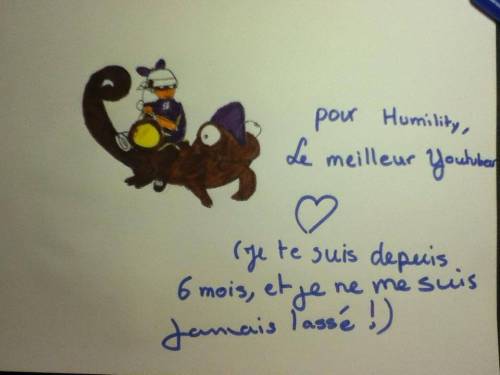 pour Humility,
Le meilleur Youtuber
(Je te suis depuis
6 mois, et je ne me suis
jamais lassé !)